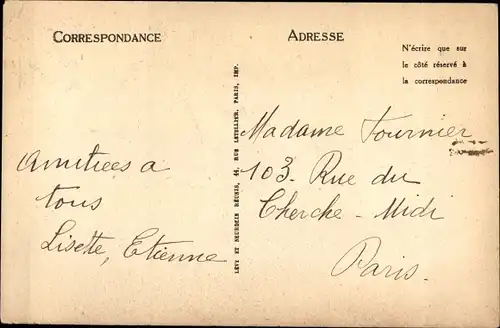 CORRESPONDANCE
ADRESSE
N'écrire que sur
le côté réservé à
la correspondance
LÉVY ET NEURDEIN RÉUNIS, 44, RUE LETELLIER, PARIS, IMP.
Amitiees a
tous
Lisette, Etienne
Madame Fournier
103. Rue du
Cherche-Midi
Paris.